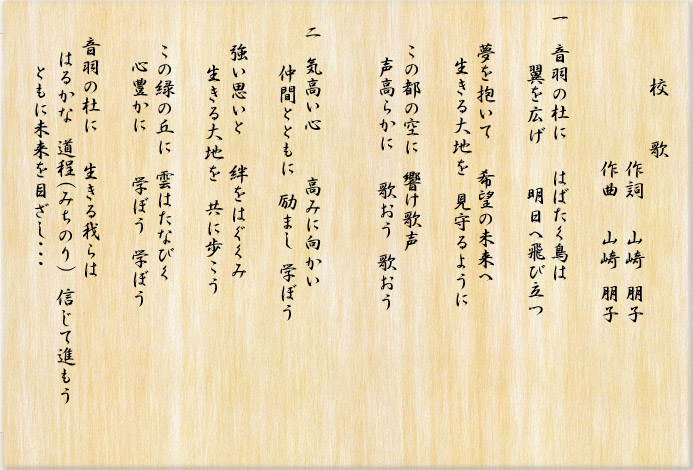 校　歌
作詞　山﨑　朋子
作曲　山﨑　朋子
一　音羽の杜に　はばたく鳥は
翼を広げ　明日へ飛び立つ
夢を抱いて　希望の未来へ
生きる大地を　見守るように
この都の空に　響け歌声
声高らかに　歌おう　歌おう
二　気高い心　高みに向かい
仲間とともに　励まし　学ぼう
強い思いと　絆をはぐくみ
生きる大地を　共に歩こう
この緑の丘に　雲はたなびく
心豊かに　学ぼう　学ぼう
音羽の杜に　生きる我らは
はるかな　道程(みちのり)　信じて進もう
ともに未来を目ざし・・・